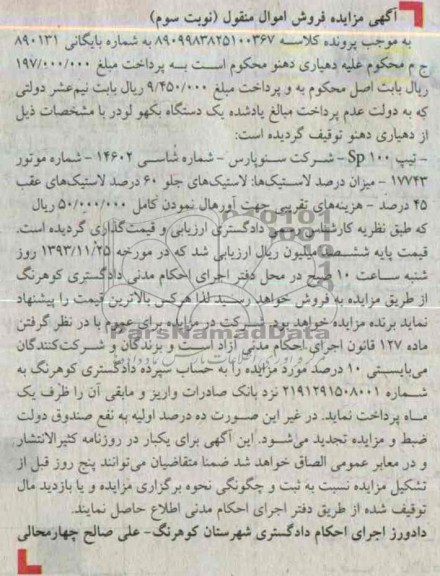 آگهی مزایده فروش اموال منقول (نوبت سوم)
به موجب پرونده کلاسه ۸۹۰۹۹۸۳۸۲۵۱۰۰۳۶۷ به شماره بایگانی ۸۹۰۱۳۱
ج م محکوم علیه دهیاری دهنو محکوم است به پرداخت مبلغ ۱۹۷/۰۰۰/۰۰۰
ریال بابت اصل محکوم به و پرداخت مبلغ ۹/۴۵۰/۰۰۰ ریال بابت نیم‌عشر دولتی
که به دولت عدم پرداخت مبالغ یادشده یک دستگاه بکهو لودر با مشخصات ذیل
از دهیاری دهنو توقیف گردیده است:
- تیپ Sp ۱۰۰ - شرکت سنوپارس - شماره شاسی ۱۴۶۰۲ - شماره موتور
۱۷۷۴۳ - میزان درصد لاستیک‌ها: لاستیک‌های جلو ۶۰ درصد لاستیک‌های عقب
۴۵ درصد - هزینه‌های تقریبی جهت آورهال نمودن کامل ۵۰/۰۰۰/۰۰۰ ریال
که طبق نظریه کارشناس رسمی دادگستری ارزیابی و قیمت‌گذاری گردیده است.
قیمت پایه ششصد میلیون ریال ارزیابی شد که در مورخه ۱۳۹۳/۱۱/۲۵ روز
شنبه ساعت ۱۰ صبح در محل دفتر اجرای احکام مدنی دادگستری کوهرنگ
از طریق مزایده به فروش خواهد رسید لذا هرکس بالاترین قیمت را پیشنهاد
نماید برنده مزایده خواهد بود. شرکت در مزایده برای عموم با در نظر گرفتن
ماده ۱۲۷ قانون اجرای احکام مدنی آزاد است و برندگان و شرکت‌کنندگان
می‌بایستی ۱۰ درصد مورد مزایده را به حساب سپرده دادگستری کوهرنگ به
شماره ۲۱۹۱۲۹۱۵۰۸۰۰۱ نزد بانک صادرات واریز و مابقی آن را ظرف یک
ماه پرداخت نماید. در غیر این صورت ده درصد اولیه به نفع صندوق دولت
ضبط و مزایده تجدید می‌شود. این آگهی برای یکبار در روزنامه کثیرالانتشار
و در معابر عمومی الصاق خواهد شد ضمنا متقاضیان می‌توانند پنج روز قبل از
تشکیل مزایده نسبت به ثبت و چگونگی نحوه برگزاری مزایده و یا بازدید مال
توقیف شده از طریق دفتر اجرای احکام مدنی اطلاع حاصل نمایند.
دادورز اجرای احکام دادگستری شهرستان کوهرنگ- علی صالح چهارمحالی
ParsNamadData